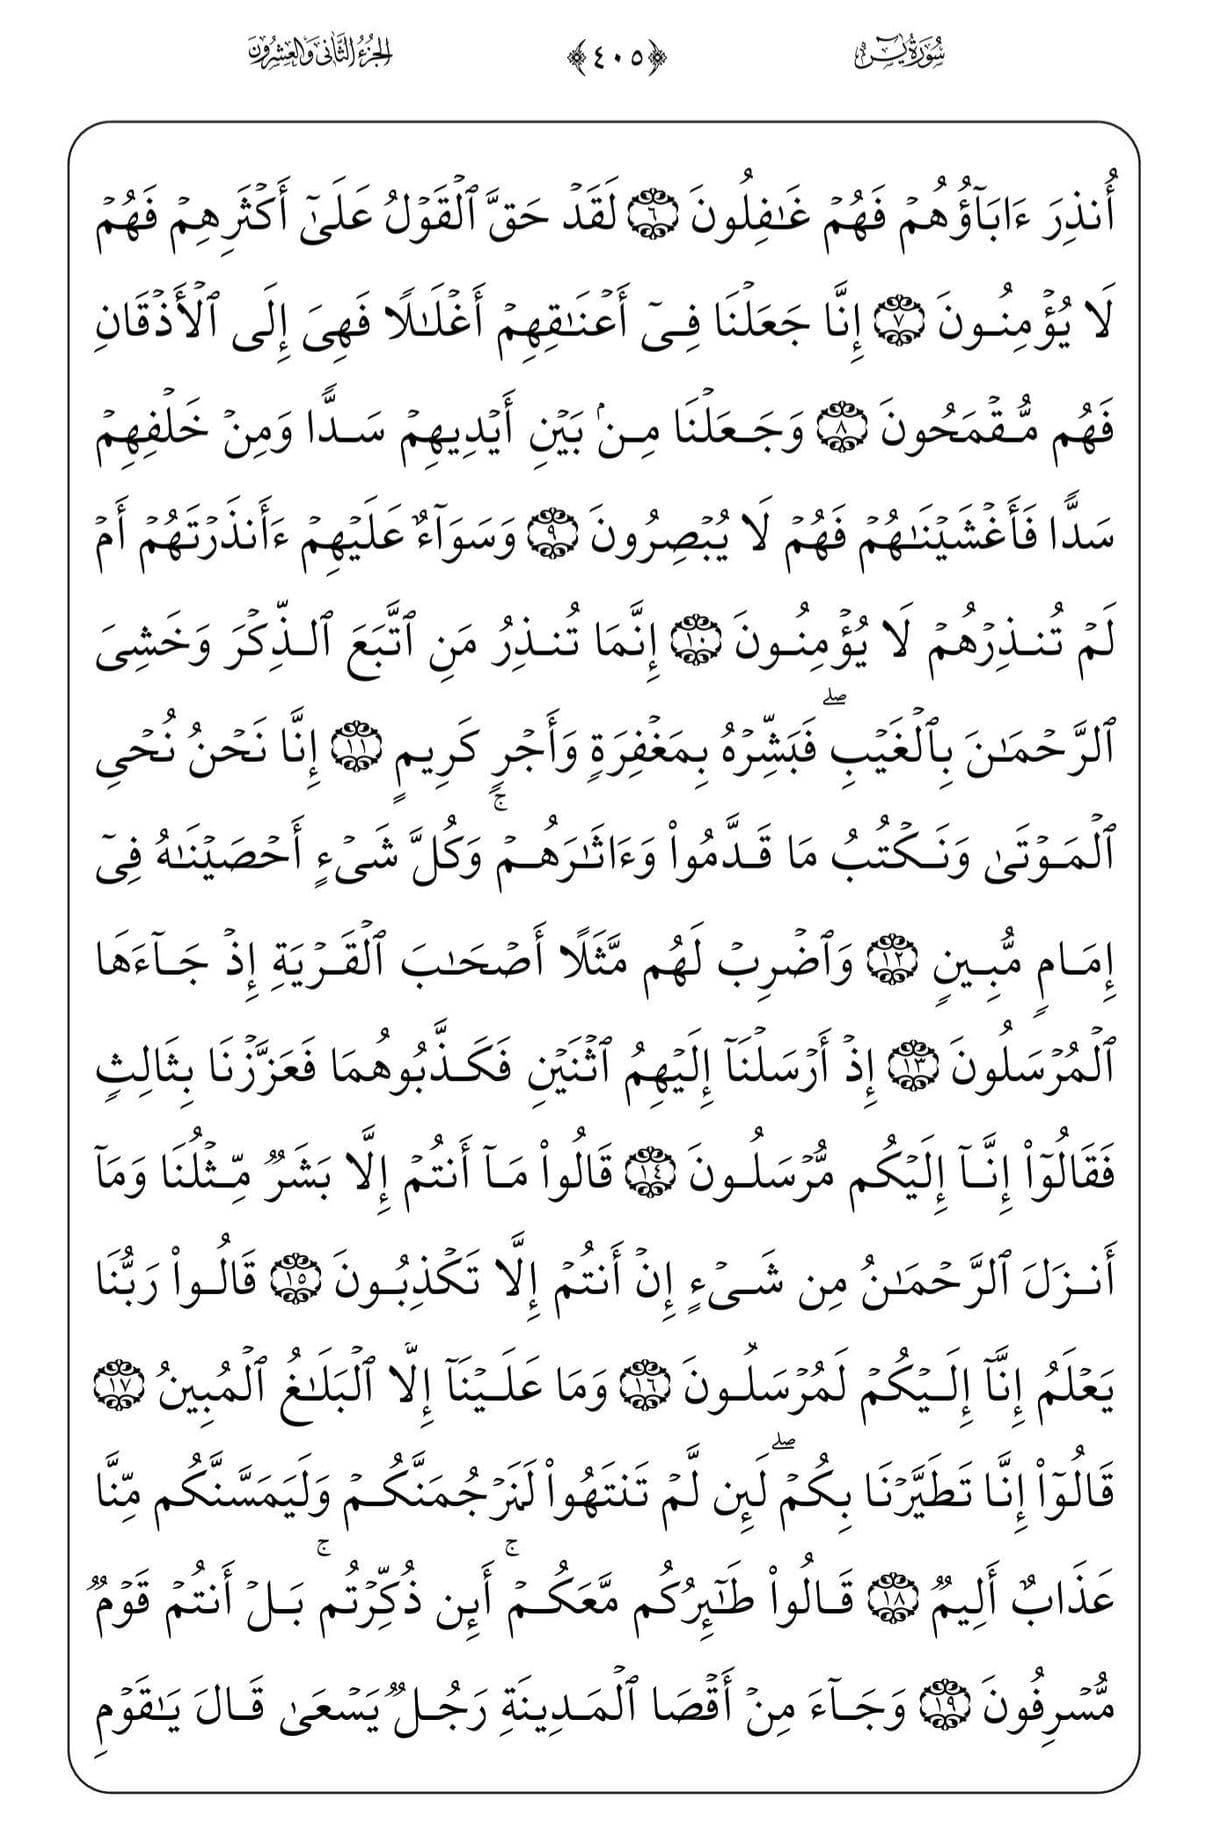 سُورَةُ يسٓ ﴿٤٠٥﴾ الجُزْءُ الثَّانِي وَالعِشْرُونَ
أُنذِرَ ءَابَآؤُهُمۡ فَهُمۡ غَـٰفِلُونَ ٦ لَقَدۡ حَقَّ ٱلۡقَوۡلُ عَلَىٰٓ أَكۡثَرِهِمۡ فَهُمۡ
لَا يُؤۡمِنُونَ ٧ إِنَّا جَعَلۡنَا فِىٓ أَعۡنَـٰقِهِمۡ أَغۡلَـٰلًا فَهِىَ إِلَى ٱلۡأَذۡقَانِ
فَهُم مُّقۡمَحُونَ ٨ وَجَعَلۡنَا مِنۢ بَيۡنِ أَيۡدِيهِمۡ سَدًّا وَمِنۡ خَلۡفِهِمۡ
سَدًّا فَأَغۡشَيۡنَـٰهُمۡ فَهُمۡ لَا يُبۡصِرُونَ ٩ وَسَوَآءٌ عَلَيۡهِمۡ ءَأَنذَرۡتَهُمۡ أَمۡ
لَمۡ تُنذِرۡهُمۡ لَا يُؤۡمِنُونَ ١٠ إِنَّمَا تُنذِرُ مَنِ ٱتَّبَعَ ٱلذِّكۡرَ وَخَشِىَ
ٱلرَّحۡمَـٰنَ بِٱلۡغَيۡبِۖ فَبَشِّرۡهُ بِمَغۡفِرَةٍ وَأَجۡرٍ كَرِيمٍ ١١ إِنَّا نَحۡنُ نُحۡىِ
ٱلۡمَوۡتَىٰ وَنَكۡتُبُ مَا قَدَّمُواْ وَءَاثَـٰرَهُمۡۚ وَكُلَّ شَىۡءٍ أَحۡصَيۡنَـٰهُ فِىٓ
إِمَامٍ مُّبِينٍ ١٢ وَٱضۡرِبۡ لَهُم مَّثَلًا أَصۡحَـٰبَ ٱلۡقَرۡيَةِ إِذۡ جَآءَهَا
ٱلۡمُرۡسَلُونَ ١٣ إِذۡ أَرۡسَلۡنَآ إِلَيۡهِمُ ٱثۡنَيۡنِ فَكَذَّبُوهُمَا فَعَزَّزۡنَا بِثَالِثٍ
فَقَالُوٓاْ إِنَّآ إِلَيۡكُم مُّرۡسَلُونَ ١٤ قَالُواْ مَآ أَنتُمۡ إِلَّا بَشَرٌ مِّثۡلُنَا وَمَآ
أَنزَلَ ٱلرَّحۡمَـٰنُ مِن شَىۡءٍ إِنۡ أَنتُمۡ إِلَّا تَكۡذِبُونَ ١٥ قَالُواْ رَبُّنَا
يَعۡلَمُ إِنَّآ إِلَيۡكُمۡ لَمُرۡسَلُونَ ١٦ وَمَا عَلَيۡنَآ إِلَّا ٱلۡبَلَـٰغُ ٱلۡمُبِينُ ١٧
قَالُوٓاْ إِنَّا تَطَيَّرۡنَا بِكُمۡۖ لَئِن لَّمۡ تَنتَهُواْ لَنَرۡجُمَنَّكُمۡ وَلَيَمَسَّنَّكُم مِّنَّا
عَذَابٌ أَلِيمٌ ١٨ قَالُواْ طَـٰٓئِرُكُم مَّعَكُمۡۚ أَئِن ذُكِّرۡتُمۚ بَلۡ أَنتُمۡ قَوۡمٌ
مُّسۡرِفُونَ ١٩ وَجَآءَ مِنۡ أَقۡصَا ٱلۡمَدِينَةِ رَجُلٌ يَسۡعَىٰ قَالَ يَـٰقَوۡمِ